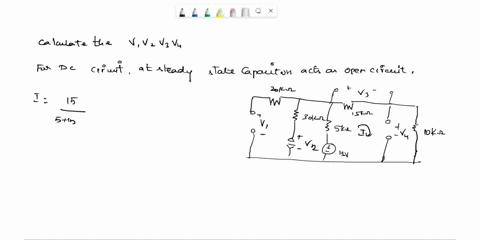 Calculate the V1 V2 V3 V4
For DC circuit, at steady state Capacitor acts as open circuit.
I = 15
5+15
20KΩ
+ V3 -
+ V1 -
30KΩ
5KΩ
15KΩ
+ V2 -
15V
+ V4 -
10KΩ